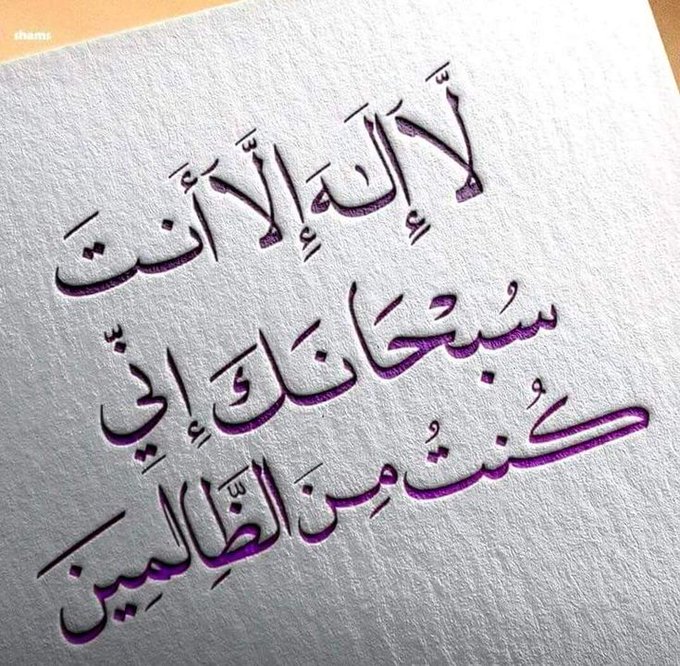 shams
لَّا إِلَٰهَ إِلَّا أَنتَ
سُبْحَانَكَ إِنِّي
كُنتُ مِنَ الظَّالِمِينَ